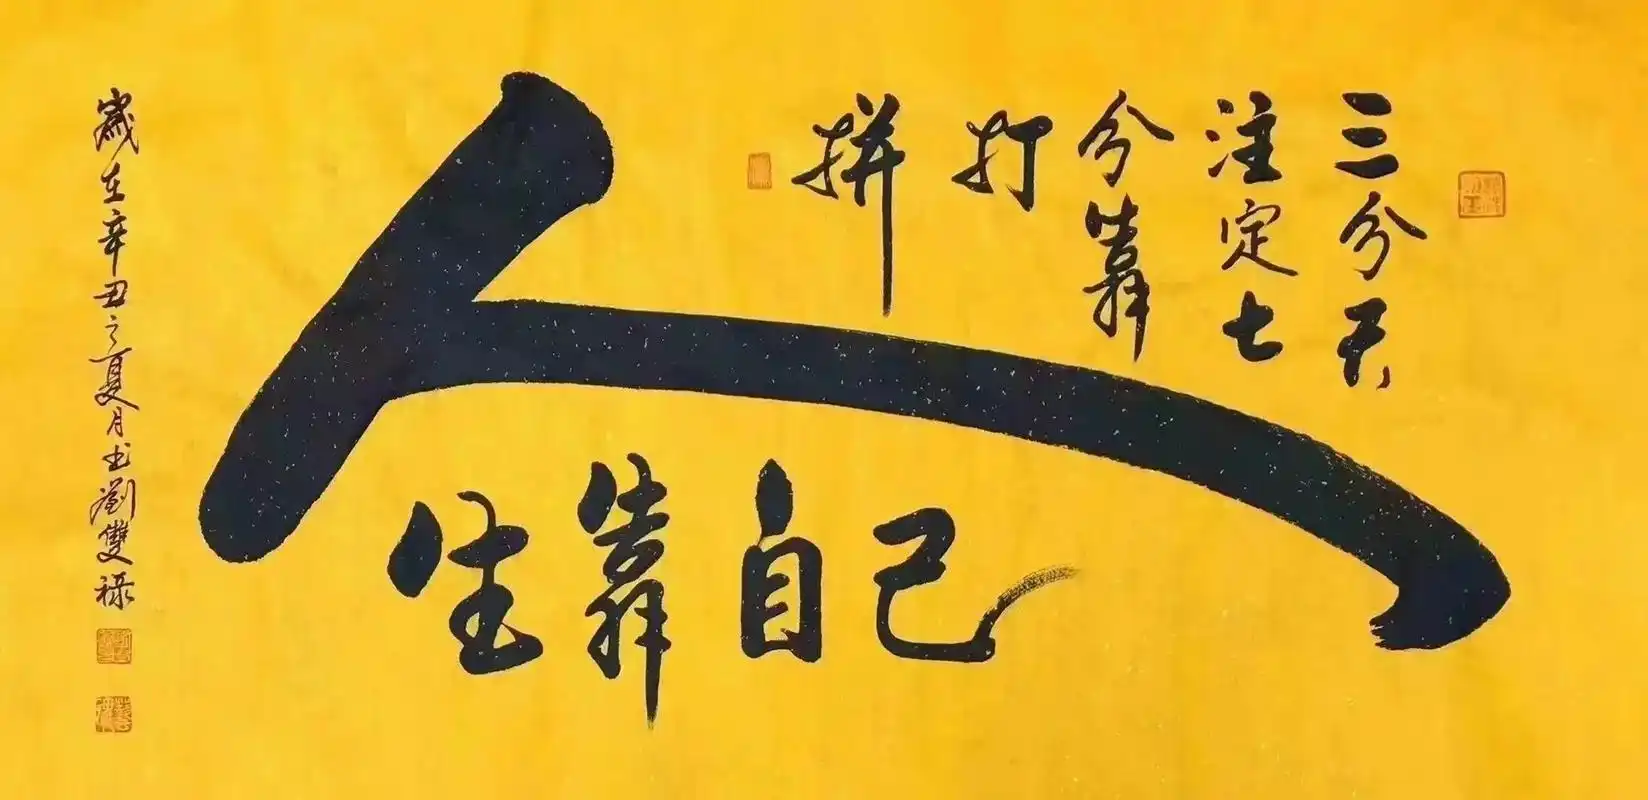 三分天
注定七
分靠
打
拼
人
生靠自己
歲在辛丑之夏月书劉雙祿